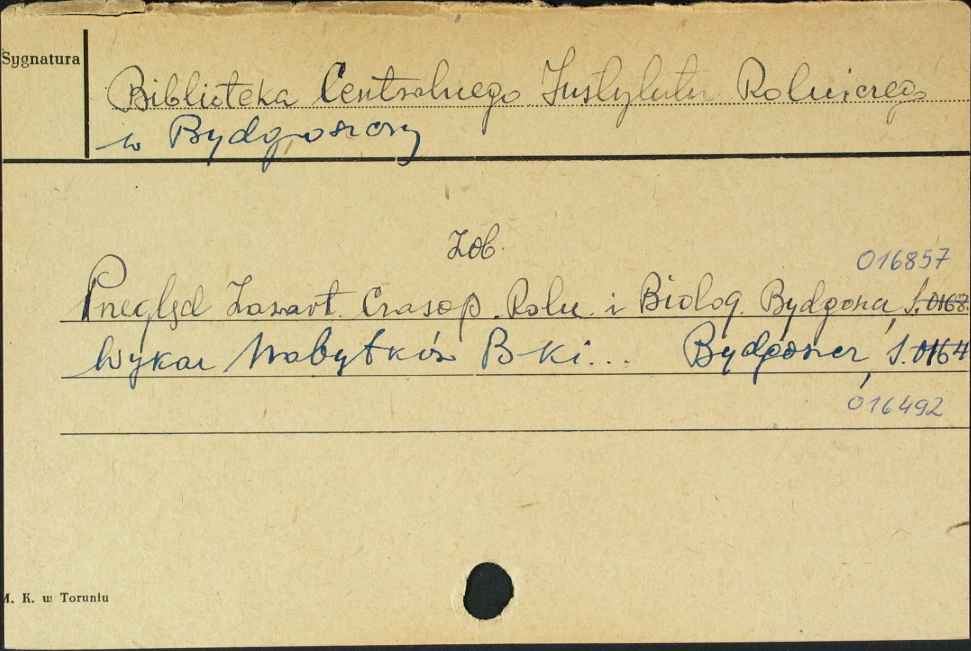 Sygnatura
Biblioteka Centralnego Instytutu Rolniczego
w Bydgoszczy
Zob.
016857
Przegląd Zawart. Czasop. Roln. i Biolog. Bydgoszcz, S. 0168
Wykaz Nabytków B-ki... Bydgoszcz, S. 0164
016492
M. K. w Toruniu